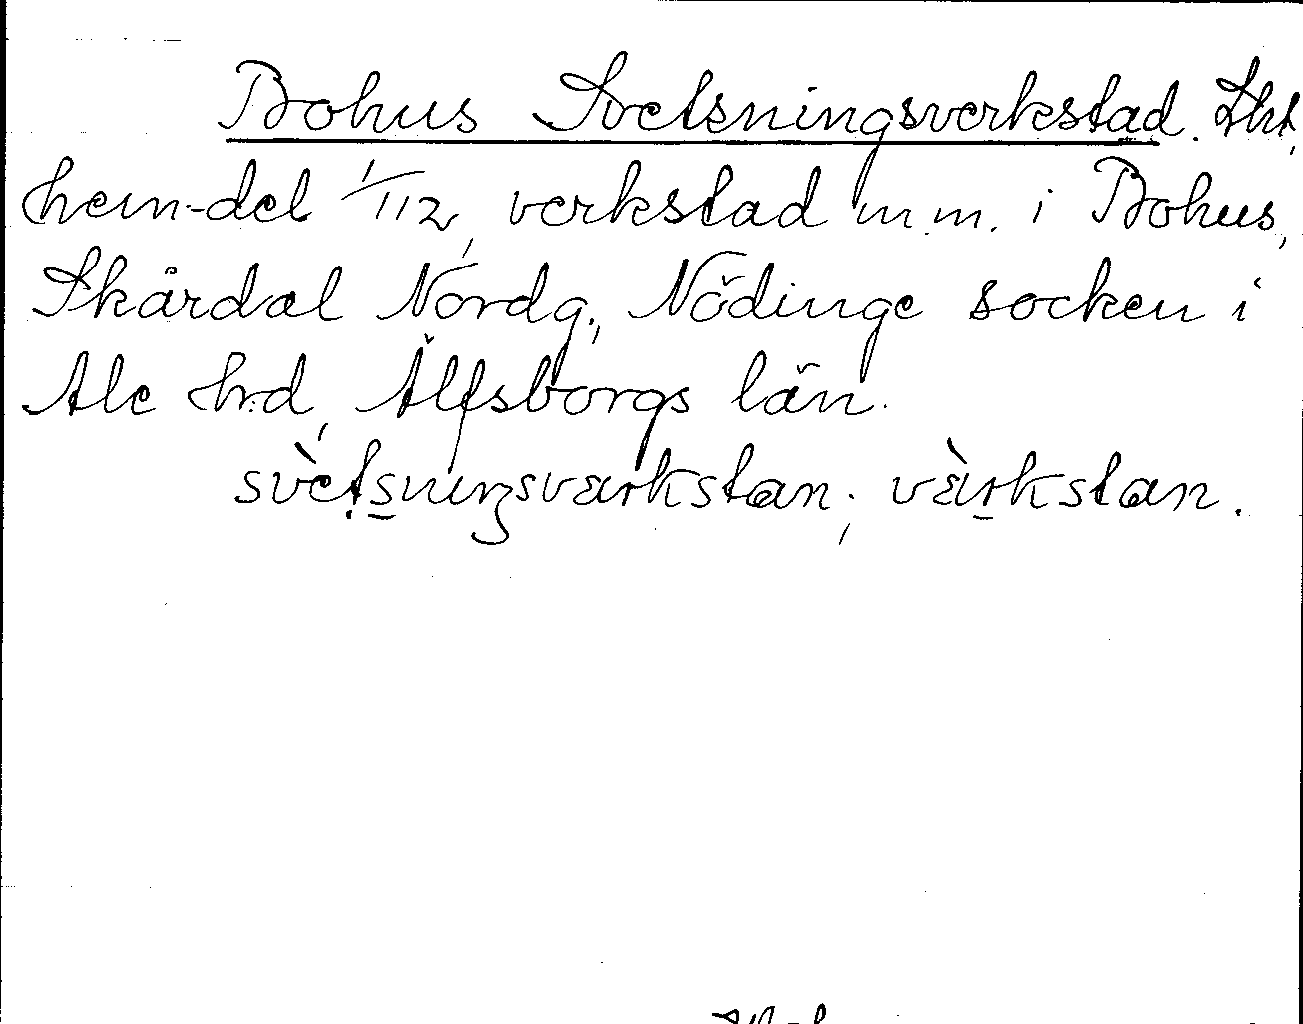 Bohus Svetsningsverkstad. Skt,
hem-del 1/112, verkstad m.m. i Bohus,
Skårdal Nordg., Nödinge socken i
Ale hd, Älfsborgs län.
svètsnıŋsvarkstan; vàrkstan.